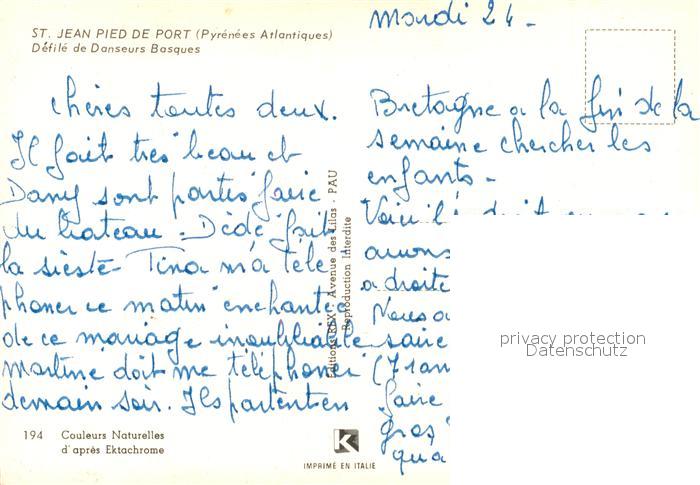 ST. JEAN PIED DE PORT (Pyrénées Atlantiques)
Défilé de Danseurs Basques
chères toutes deux.
Il fait très beau et
Dany sont partis faire
du bateau. Dédé fait
la sieste - Tina m'a télé
phoner ce matin enchantée
de ce mariage inoubliable
martine doit me téléphoner
demain soir. Ils partent en
194 Couleurs Naturelles
d'après Ektachrome
Editions REX - Avenue des Lilas - PAU
Reproduction Interdite
K
IMPRIMÉ EN ITALIE
mardi 24 -
Bretagne a la fin de la
semaine chercher les
enfants -
Voici l'
avons
a droite
Nous a
faire
gros
qu'a
privacy protection
Datenschutz